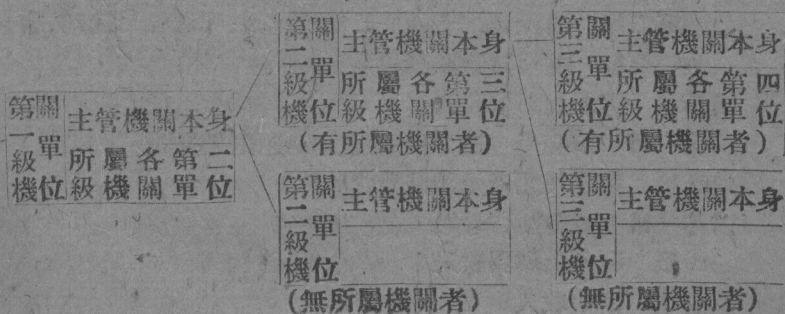 第一級機關單位
主管機關本身
所屬各第二
級機關單位
第二級機關單位
主管機關本身
所屬各第三
級機關單位
(有所屬機關者)
第二級機關單位
主管機關本身
(無所屬機關者)
第三級機關單位
主管機關本身
所屬各第四
級機關單位
(有所屬機關者)
第三級機關單位
主管機關本身
(無所屬機關者)